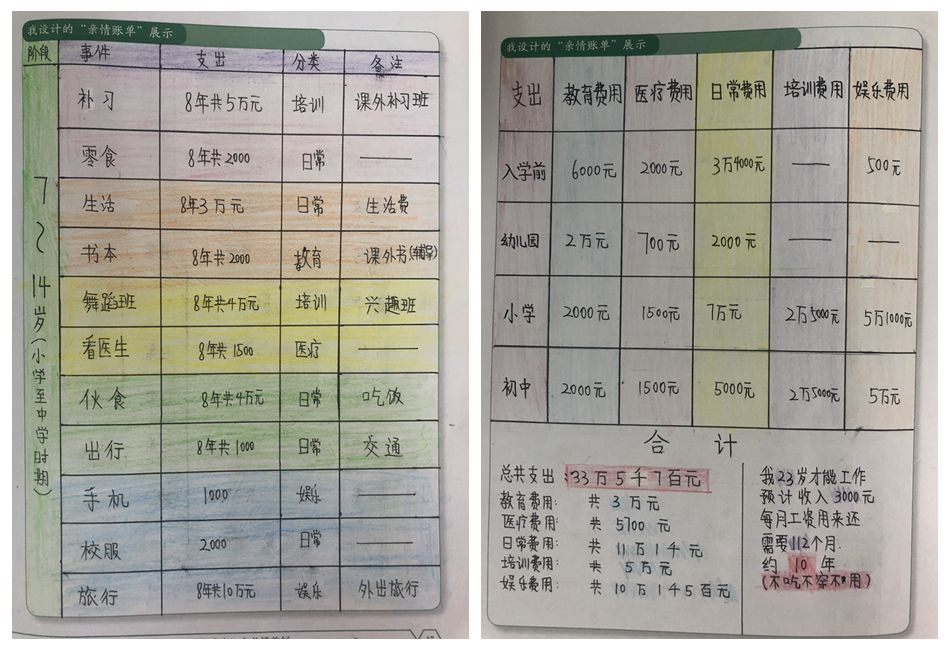 我设计的“亲情账单”展示
阶段 事件 支出 分类 备注
7~14岁(小学至中学时期)
补习 8年共5万元 培训 课外补习班
零食 8年共2000 日常 ——
生活 8年3万元 日常 生活费
书本 8年共2000 教育 课外书(辅导)
舞蹈班 8年共4万元 培训 兴趣班
看医生 8年共1500 医疗 ——
伙食 8年共4万元 日常 吃饭
出行 8年共1000 日常 交通
手机 1000 娱乐 ——
校服 2000 日常 ——
旅行 8年共10万元 娱乐 外出旅行
我设计的“亲情账单”展示
支出 教育费用 医疗费用 日常费用 培训费用 娱乐费用
入学前 6000元 2000元 3万4000元 —— 500元
幼儿园 2万元 700元 2000元 —— ——
小学 2000元 1500元 7万元 2万5000元 5万1000元
初中 2000元 1500元 5000元 2万5000元 5万元
合计
总共支出:33万5千7百元
教育费用: 共 3万元
医疗费用: 共 5700元
日常费用: 共 11万1千元
培训费用: 共 5万元
娱乐费用: 共 10万1千5百元
我23岁才能工作
预计收入3000元
每月工资用来还
需要112个月.
约 10 年
(不吃不穿不用)